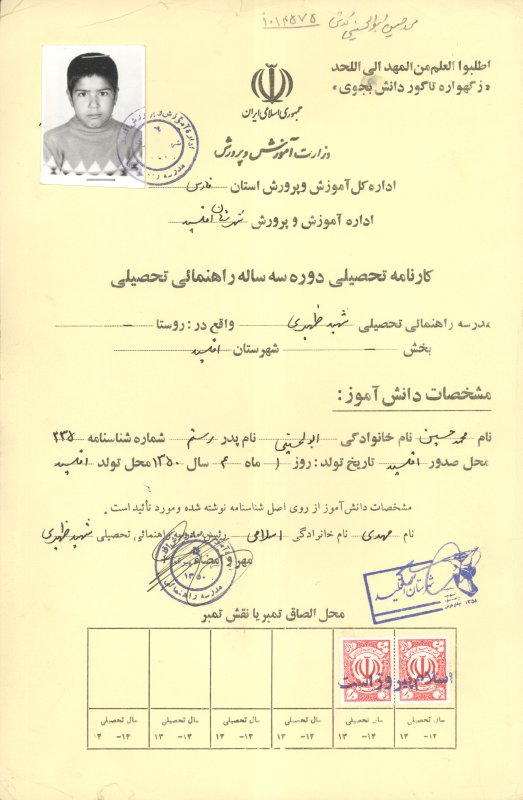 محمد حسین ابوالحسنی
اطلبوا العلم من المهد الی اللحد
«زگهواره تاگور دانش بجوی»
جمهوری اسلامی ایران
وزارت آموزش و پرورش
اداره کل آموزش وپرورش استان فارس
اداره آموزش و پرورش شهرستان اقلید
کارنامه تحصیلی دوره سه ساله راهنمائی تحصیلی
مدرسه راهنمائی تحصیلی شهید واقع در: روستا –
بخش – شهرستان اقلید
مشخصات دانش آموز:
نام محمد حسین نام خانوادگی نام پدر رستم شماره شناسنامه ۲۳۵
محل صدور اقلید تاریخ تولد: روز ۱ ماه ۴ سال ۱۳۵۰ محل تولد اقلید
مشخصات دانش آموز از روی اصل شناسنامه نوشته شده ومورد تأئید است.
نام مهدی نام خانوادگی اسلامی رئیس مدرسه راهنمائی تحصیلی شهید
مهر و امضاء
محل الصاق تمبر یا نقش تمبر
اسلام پیروز است
سال تحصیلی سال تحصیلی سال تحصیلی سال تحصیلی سال تحصیلی سال تحصیلی
۱۳– ۱۳ ۱۳– ۱۳ ۱۳– ۱۳ ۱۳– ۱۳ ۱۳– ۱۳ ۱۳– ۱۳